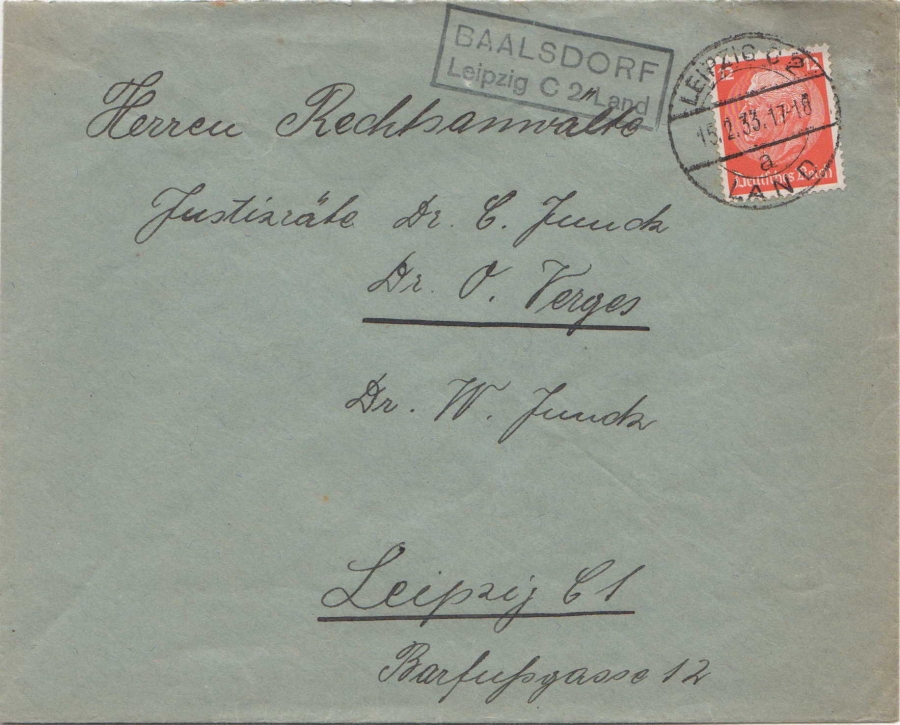 BAALSDORF
Leipzig C 2 Land
LEIPZIG C 2
15.2.33.17-18
a
LAND
12
Deutsches Reich
Herren Rechtsanwälte
Justizräte Dr. C. Junck
Dr. O. Verges
Dr. W. Junck
Leipzig C 1
Barfußgasse 12